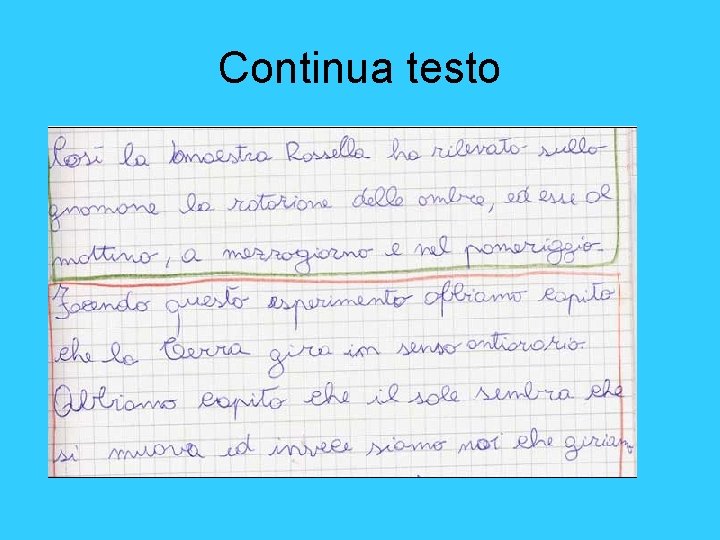 Continua testo
Così la maestra Rossella ha rilevato sullo
gnomone la rotazione delle ombre, ed esse al
mattino, a mezzogiorno e nel pomeriggio.
Facendo questo esperimento abbiamo capito
che la Terra gira in senso antiorario.
Abbiamo capito che il sole sembra che
si muova ed invece siamo noi che giriamo